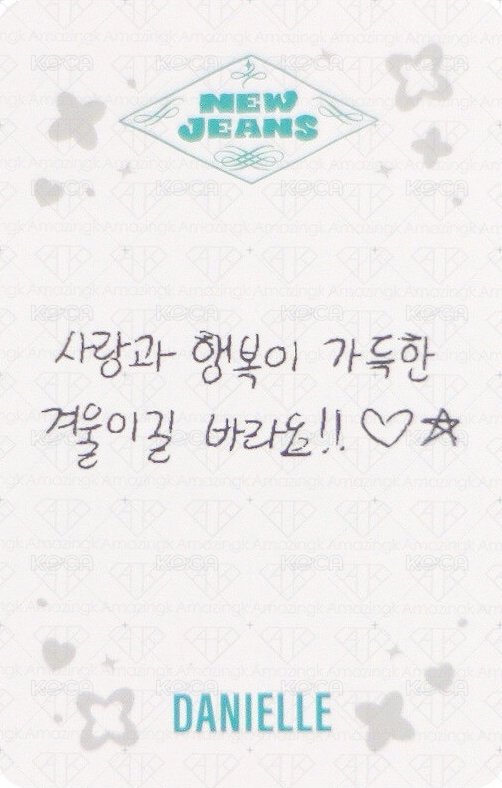 NEW
JEANS
사랑과 행복이 가득한
겨울이길 바라요!! ♡☆
DANIELLE